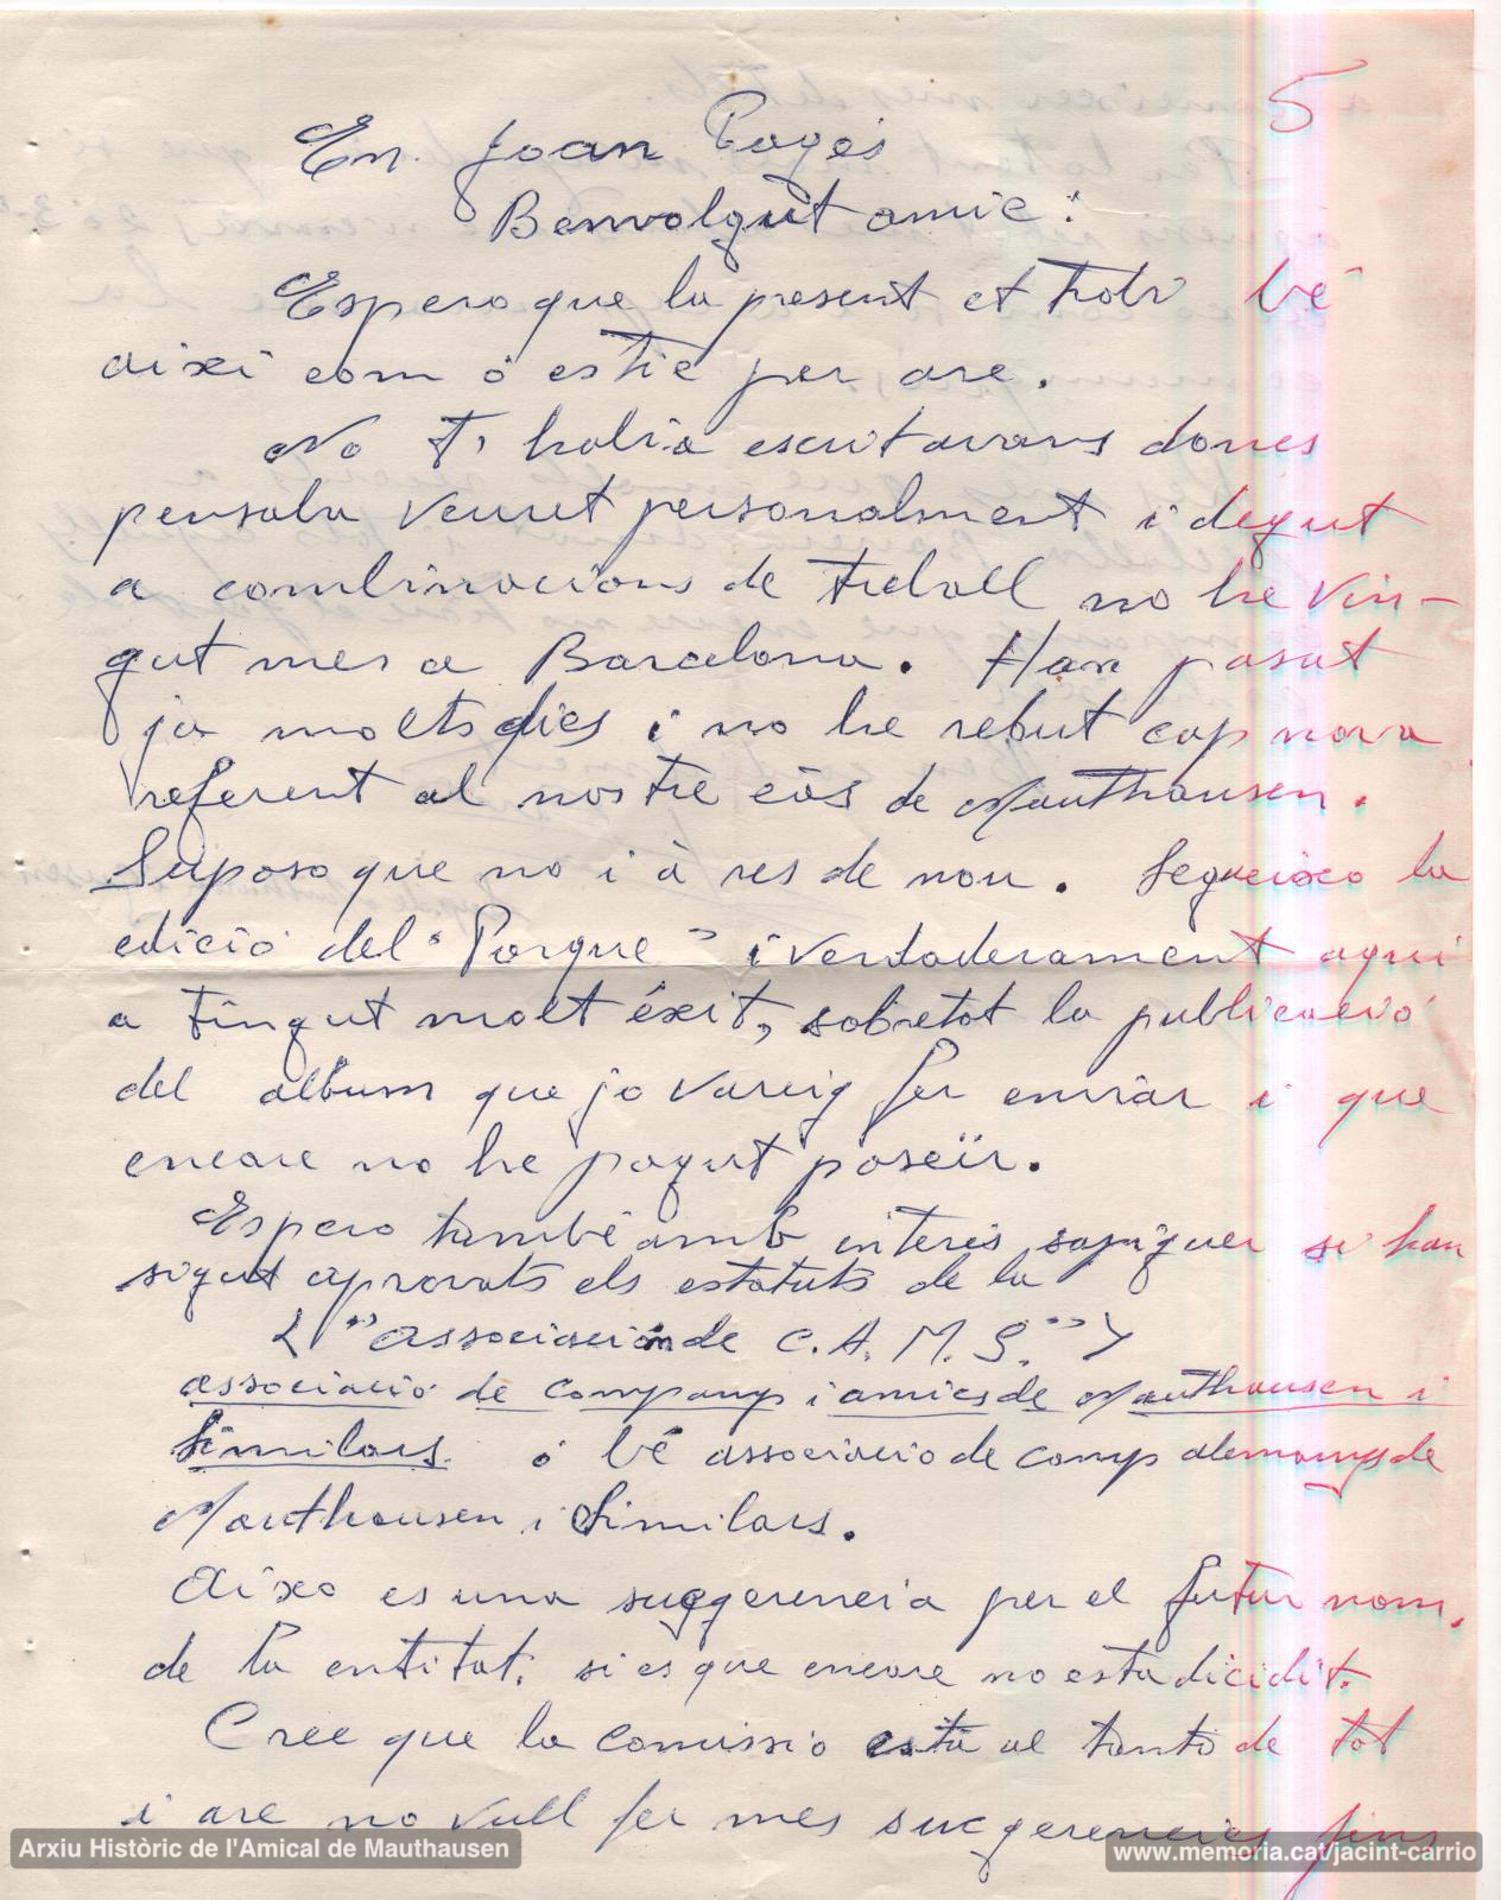 5
En. Joan Pagés
Benvolgut amic:
Espero que la present et trobi bé
aixi com o estic per are.
No t' habia escrit avans doncs
pensaba veuret personalment i degut
a combinacions de treball no he vin-
gut mes a Barcelona. Han pasat
ja molts dies i no he rebut cap nova
referent al nostre cas de Mauthausen.
Suposo que no i à res de nou. Segueixo la
edició del "Porque" i verdaderament aqui
a tingut molt éxit, sobretot la publicació
del album que jo vareig fer enviar i que
encare no he pogut poseïr.
Espero també amb interés sapiguer si han
sigut aprovats els estatuts de la
< "associació de C.A.M.S." >
associació de companys i amics de Mauthausen i
Similars. o bé associacio de camp alemanys de
Mauthausen i Similars.
Aixo es una suggerencia per el futur nom,
de la entitat. si es que encare no esta dicidit.
Crec que la comissio está al tanto de tot
i are no vull fer mes suggerencies fins
Arxiu Històric de l'Amical de Mauthausen
www.memoria.cat/jacint-carrio